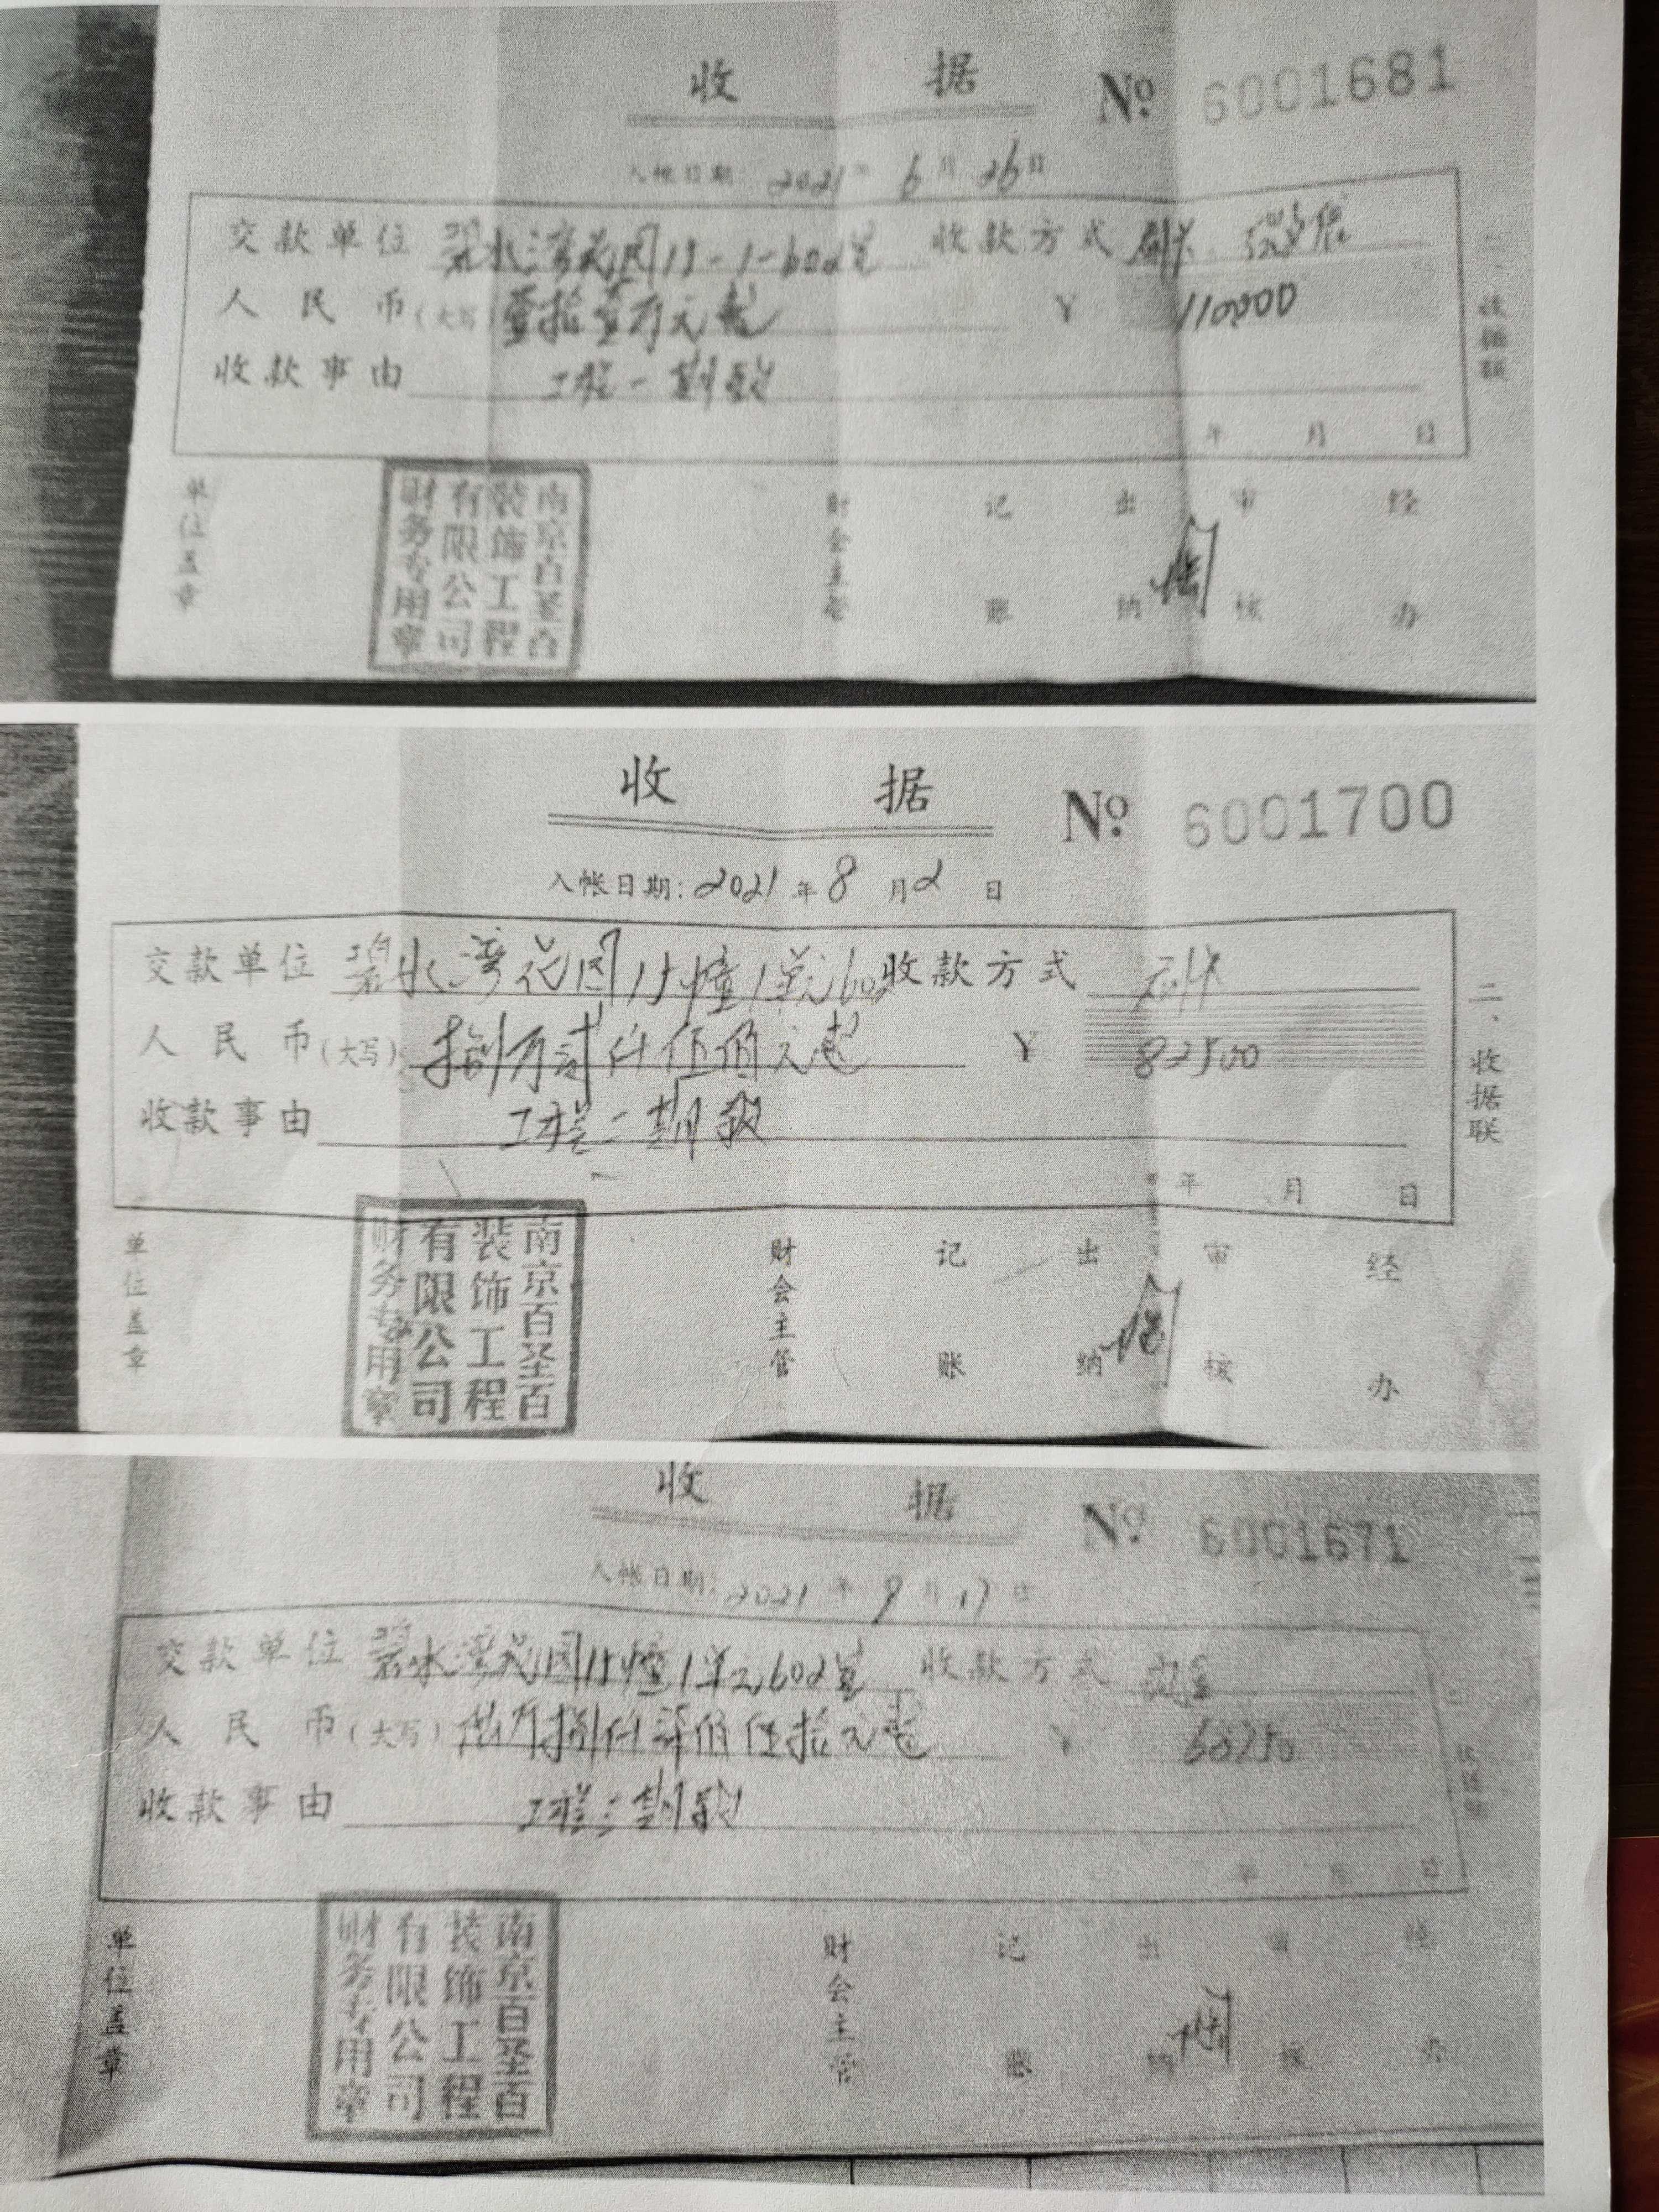 收 据 № 6001681
入帐日期: 2021年 6月 26日
交款单位 碧水湾花园15-1-602室 收款方式 刷卡、微信
人民币(大写) 壹拾壹万元整 ¥ 110000
收款事由 工程一期款
年 月 日
二、收据联
单位盖章 财会主管 记账 出纳 审核 经办
南京百圣百装饰工程有限公司财务专用章
收 据 № 6001700
入帐日期: 2021年 8月 2日
交款单位 碧水湾花园15幢1单元602 收款方式 刷卡
人民币(大写) 捌万贰仟伍佰元整 ¥ 82500
收款事由 工程二期款
年 月 日
二、收据联
单位盖章 财会主管 记账 出纳 审核 经办
南京百圣百装饰工程有限公司财务专用章
收 据 № 6001671
入帐日期: 2021年 9月 17日
交款单位 碧水湾花园15幢1单元602室 收款方式
人民币(大写) 陆万捌仟贰佰伍拾元整 ¥ 68250
收款事由 工程三期款
年 月 日
收据联
单位盖章 财会主管 记账 出纳 审核 经办
南京百圣百装饰工程有限公司财务专用章